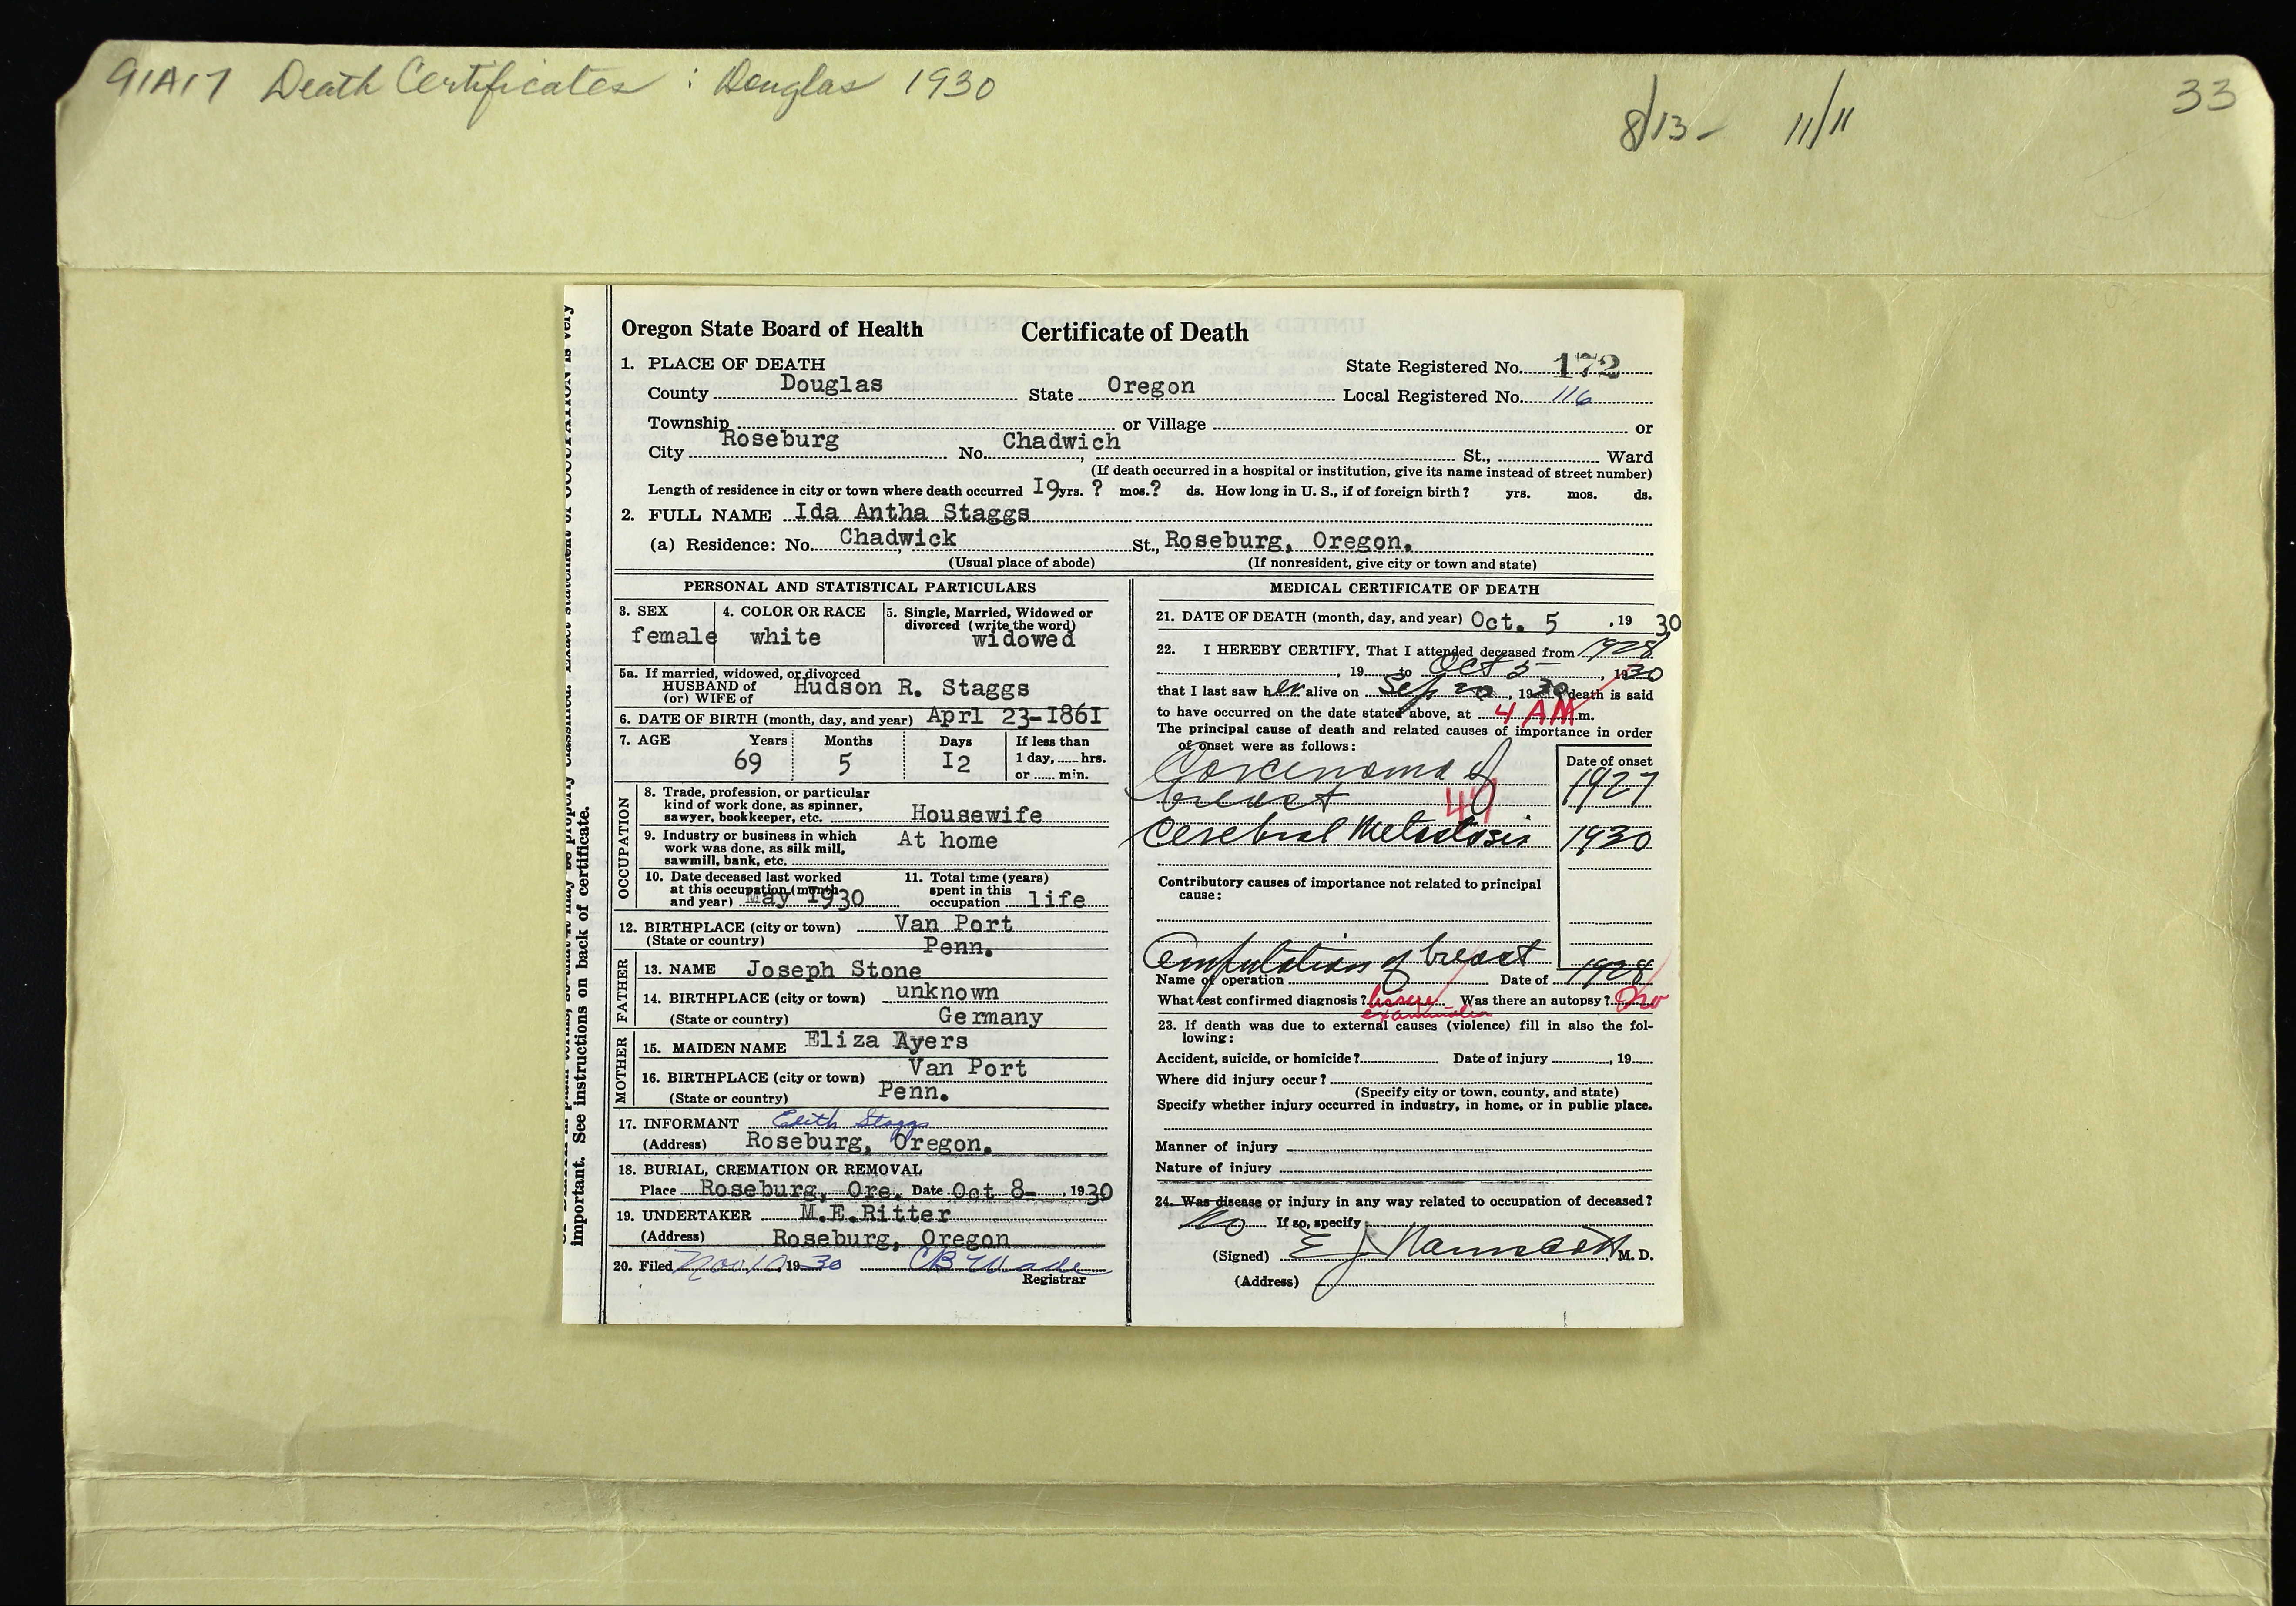 91A17 Death Certificates : Douglas 1930
8/13 - 11/11
33
Oregon State Board of Health Certificate of Death
1. PLACE OF DEATH State Registered No. 172
County Douglas State Oregon Local Registered No. 116
Township or Village or
City Roseburg No. Chadwich St., Ward
(If death occurred in a hospital or institution, give its name instead of street number)
Length of residence in city or town where death occurred I9 yrs. ? mos. ? ds. How long in U. S., if of foreign birth? yrs. mos. ds.
2. FULL NAME Ida Antha Staggs
(a) Residence: No. Chadwick St., Roseburg, Oregon.
(Usual place of abode) (If nonresident, give city or town and state)
PERSONAL AND STATISTICAL PARTICULARS
3. SEX 4. COLOR OR RACE 5. Single, Married, Widowed or
divorced (write the word)
female white widowed
5a. If married, widowed, or divorced
HUSBAND of Hudson R. Staggs
(or) WIFE of
6. DATE OF BIRTH (month, day, and year) Aprl 23-I86I
7. AGE Years Months Days If less than
69 5 I2 1 day, hrs.
or min.
OCCUPATION
8. Trade, profession, or particular
kind of work done, as spinner,
sawyer, bookkeeper, etc. Housewife
9. Industry or business in which
work was done, as silk mill, At home
sawmill, bank, etc.
10. Date deceased last worked 11. Total time (years)
at this occupation (month spent in this
and year) May I930 occupation life
12. BIRTHPLACE (city or town) Van Port
(State or country) Penn.
FATHER
13. NAME Joseph Stone
14. BIRTHPLACE (city or town) unknown
(State or country) Germany
MOTHER
15. MAIDEN NAME Eliza Ayers
16. BIRTHPLACE (city or town) Van Port
(State or country) Penn.
17. INFORMANT Edith Staggs
(Address) Roseburg, Oregon.
18. BURIAL, CREMATION OR REMOVAL
Place Roseburg, Ore. Date Oct 8- , 1930
19. UNDERTAKER M.E.Ritter
(Address) Roseburg, Oregon
20. Filed Nov 10 , 1930 CB Wade
Registrar
MEDICAL CERTIFICATE OF DEATH
21. DATE OF DEATH (month, day, and year) Oct. 5 , 19 30
22. I HEREBY CERTIFY, That I attended deceased from 1928
, 19 to Oct 5 , 1930
that I last saw her alive on Sep 20 , 1930 death is said
to have occurred on the date stated above, at 4 AM m.
The principal cause of death and related causes of importance in order
of onset were as follows:
Date of onset
Carcinoma of 1927
breast 47
Cerebral Metastosis 1930
Contributory causes of importance not related to principal
cause:
Amputation of breast
Name of operation Date of 1928
What test confirmed diagnosis? tissue Was there an autopsy? No
examination
23. If death was due to external causes (violence) fill in also the fol-
lowing:
Accident, suicide, or homicide? Date of injury , 19
Where did injury occur?
(Specify city or town, county, and state)
Specify whether injury occurred in industry, in home, or in public place.
Manner of injury
Nature of injury
24. Was disease or injury in any way related to occupation of deceased?
No If so, specify
(Signed) E J , M. D.
(Address)
important. See instructions on back of certificate.